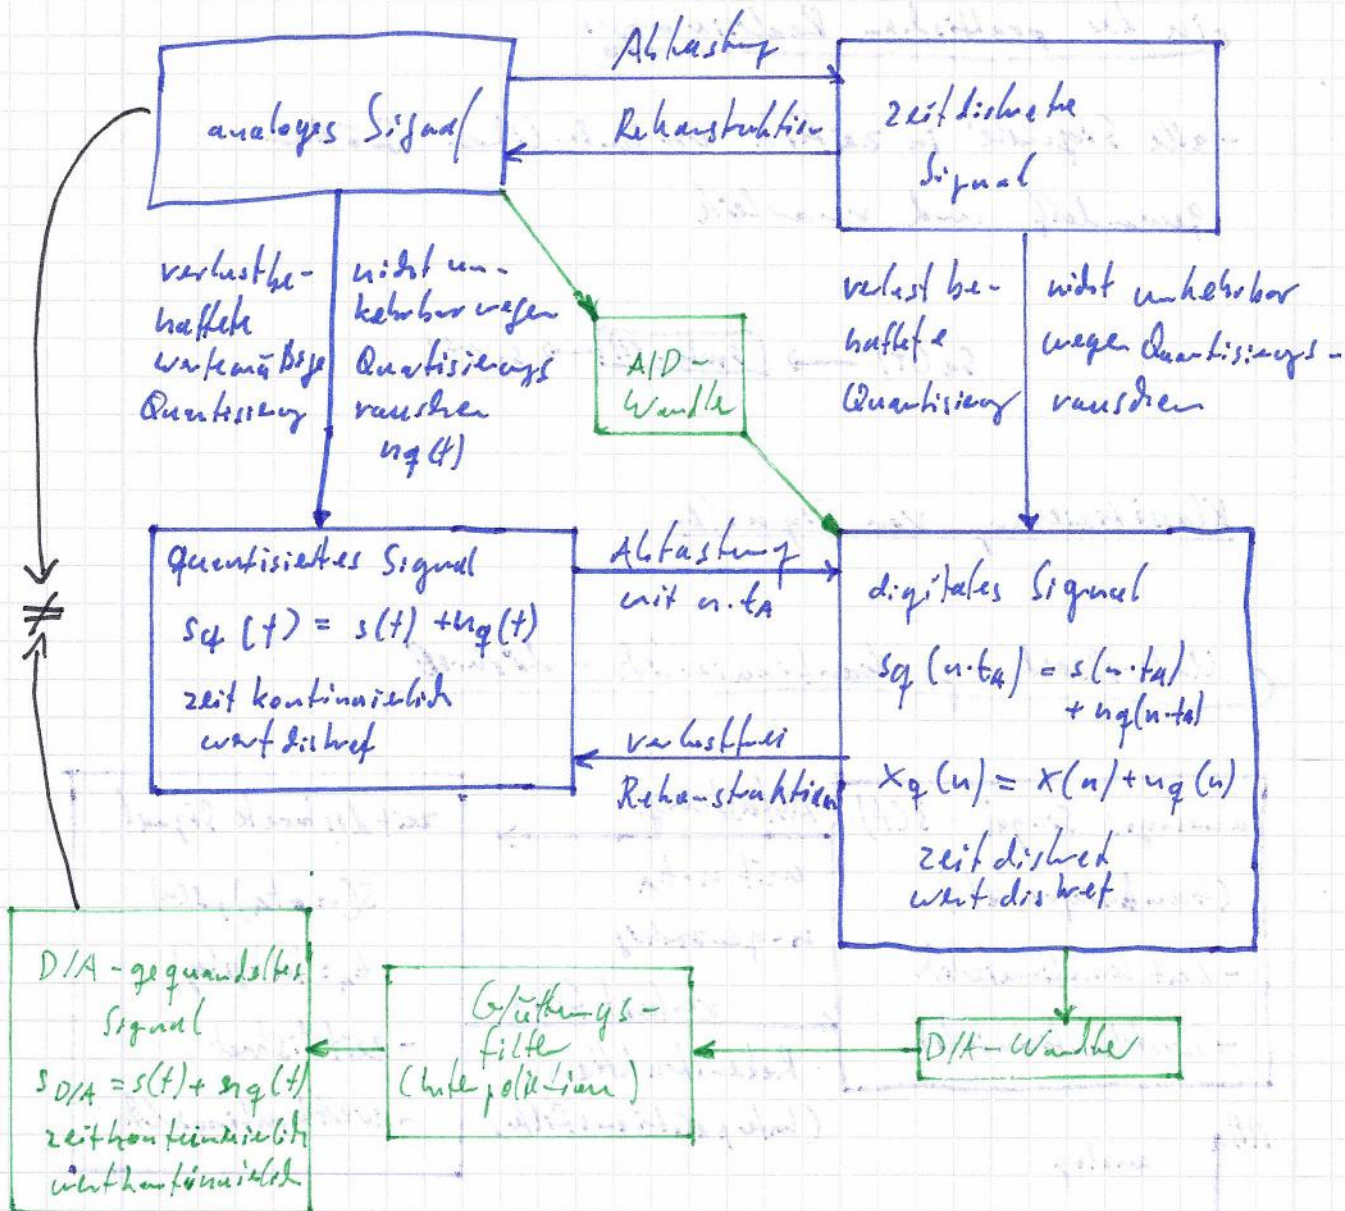 Abtastung
analoges Signal
Rekonstruktion
zeitdiskrete
Signal
verlustbe-
haftete
wertemäßige
Quantisierung
nicht um-
kehrbar wegen
Quantisierungs
rauschen
nq(t)
A/D-
Wandler
verlust be-
haftete
Quantisierung
nicht umkehrbar
wegen Quantisierungs-
rauschen
quantisiertes Signal
sq(t) = s(t) + nq(t)
zeit kontinuierlich
wertdiskret
Abtastung
mit n·tA
verlustfrei
Rekonstruktion
digitales Signal
sq(n·tA) = s(n·tA)
+ nq(n·tA)
xq(n) = x(n) + nq(n)
zeitdiskret
wertdiskret
≠
D/A-gequandeltes
Signal
sD/A = s(t) + nq(t)
zeitkontinuierlich
wertkontinuierlich
Glättungs-
filter
(Interpolation)
D/A-Wandler